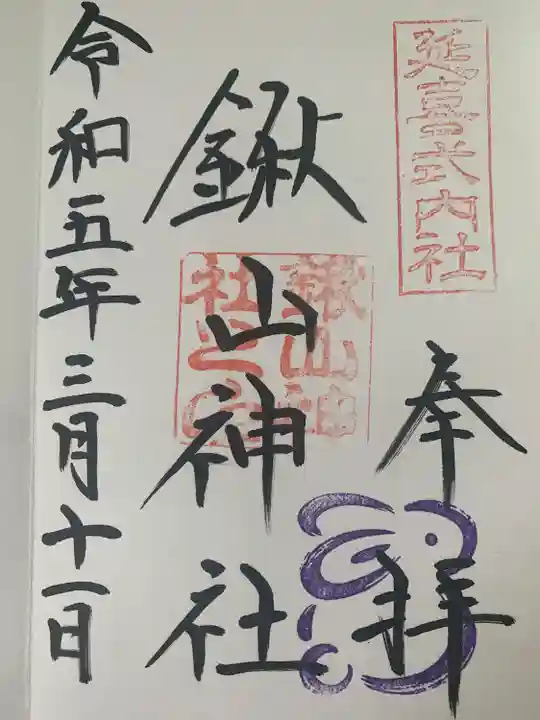 延喜式内社
奉拝
鍬山神社
鍬山神社之印
令和五年三月十一日